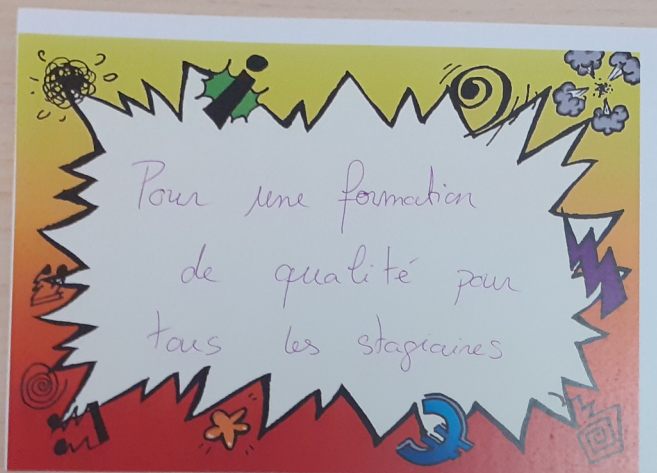 Pour une formation
de qualité pour
tous les stagiaires